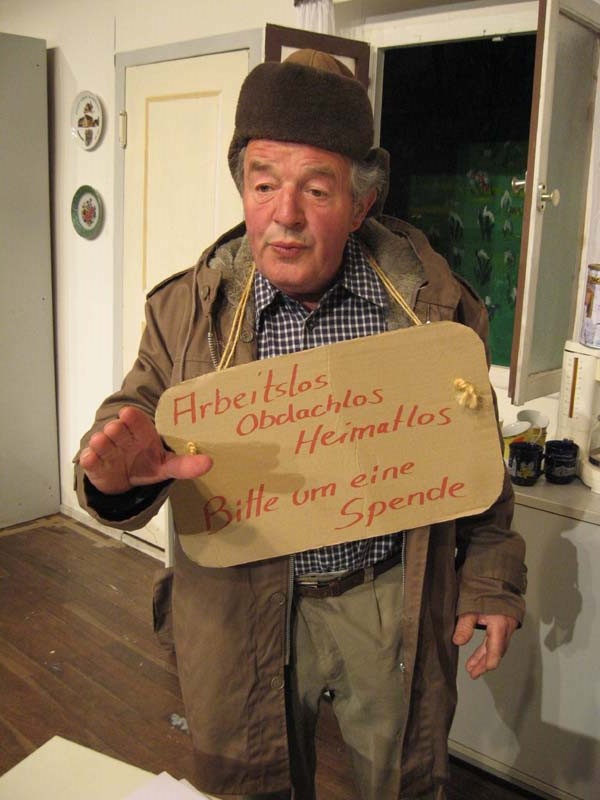 Arbeitslos
Obdachlos
Heimatlos
Bitte um eine
Spende